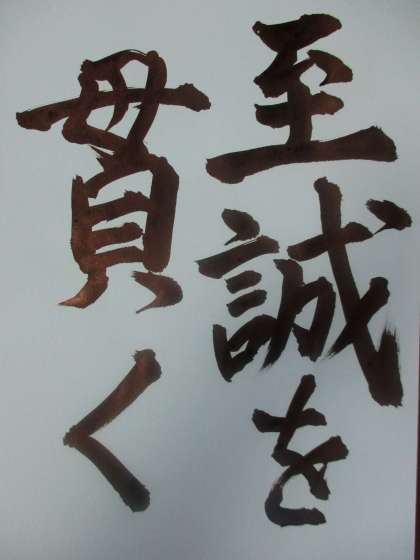 至誠を
貫く